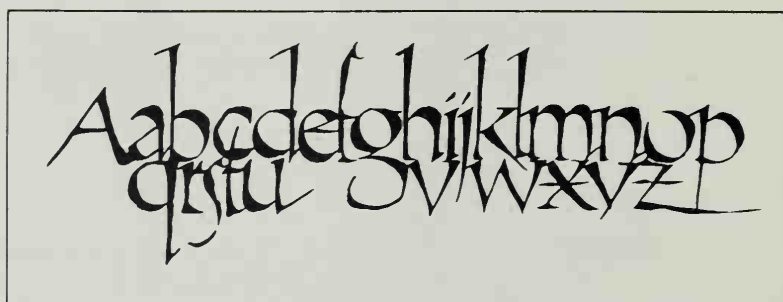 Aabcdefghijklmnop
qrstuvwxyz